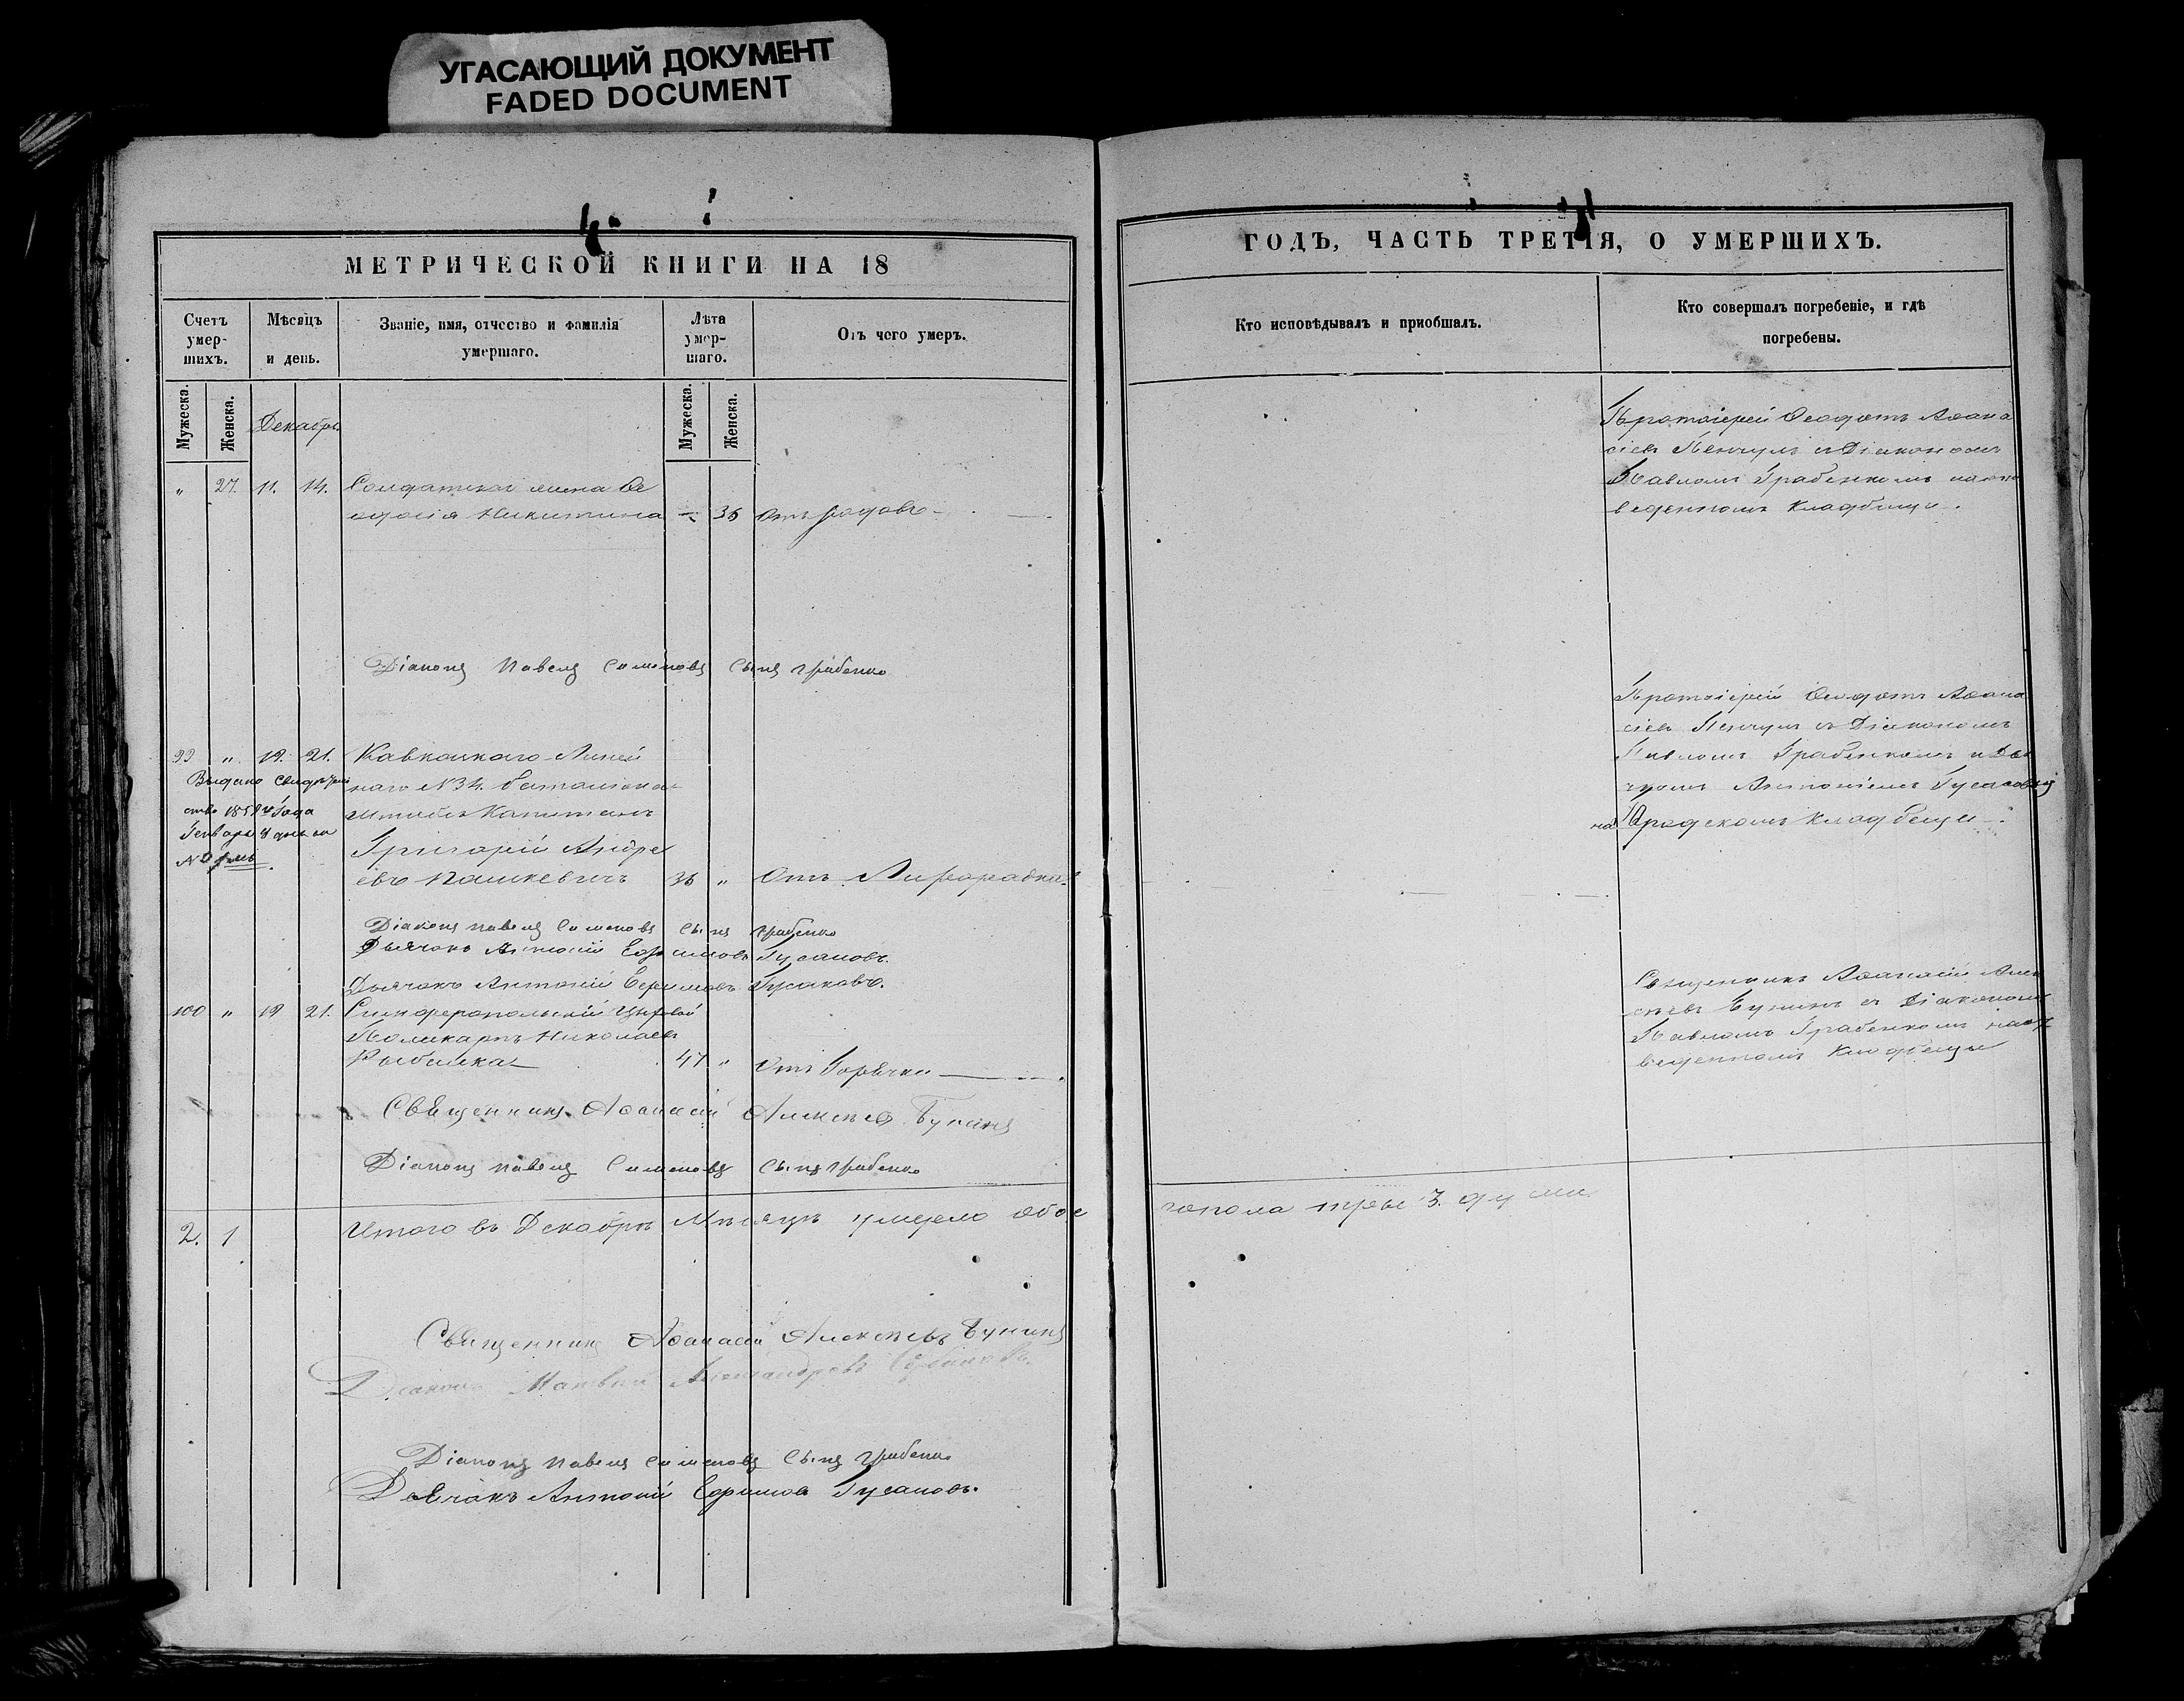 УГАСАЮЩИЙ ДОКУМЕНТ
FADED DOCUMENT
МЕТРИЧЕСКОЙ КНИГИ НА 18
Счетъ умер-
шихъ.
Мѣсяцъ
и день.
Званіе, имя, отчество и фамилія
умершаго.
Лѣта
умер-
шаго.
Отъ чего умеръ.
Мужеска.
Женска.
Декабрь
Мужеска.
Женска.
" 27. 11. 14. Солдатская жена Ѳе
одосія Никитина — 36 Отъ родовъ
Діаконъ Павелъ Симоновъ сынъ Грабенко
99 " 19. 21. Кавказкаго Линей
наго №34. баталіона
Штабсъ Капитанъ
Григорій Андре
евъ Пашкевичъ 36 " Отъ Лихорадки
Выдано Свидѣтель
ство 1859 года
Генваря 4 дня за
№
Діаконъ Павелъ Симоновъ сынъ Грабенко
Дьячокъ Антоній Ефимовъ Гусаковъ.
Дьячокъ Антоній Ефимовъ Гусаковъ.
100 " 19 21. Симферопольскій Цеховой
Поликарпъ Николаевъ
Рыбалка 47 " Отъ Горячки
Священникъ Аѳанасій Алексѣевъ Бунинъ
Діаконъ Павелъ Симоновъ сынъ Грабенко
2. 1 Итого въ Декабрѣ Мѣсяцѣ умерло обое
Священникъ Аѳанасій Алексѣевъ Бунинъ
Діаконъ Матвей Александровъ
Діаконъ Павелъ Симоновъ сынъ Грабенко
Дьячокъ Антоній Ефимовъ Гусаковъ.
ГОДЪ, ЧАСТЬ ТРЕТІЯ, О УМЕРШИХЪ.
Кто исповѣдывалъ и пріобщалъ.
Кто совершалъ погребеніе, и гдѣ
погребены.
Протоіерей Ѳеодотъ Аѳана
сіевъ съ Діакономъ
Павломъ Грабенкомъ на отве
веденномъ Кладбищѣ.
Протоіерей Ѳеодотъ Аѳана
сіевъ съ Діакономъ
Павломъ Грабенкомъ и Дья
чкомъ Антоніемъ Гусаковымъ
на Градскомъ Кладбищѣ.
Священникъ Аѳанасій Алек
сѣевъ Бунинъ съ Діакономъ
Павломъ Грабенкомъ на от
веденномъ Кладбищѣ
гопола три 3. души.